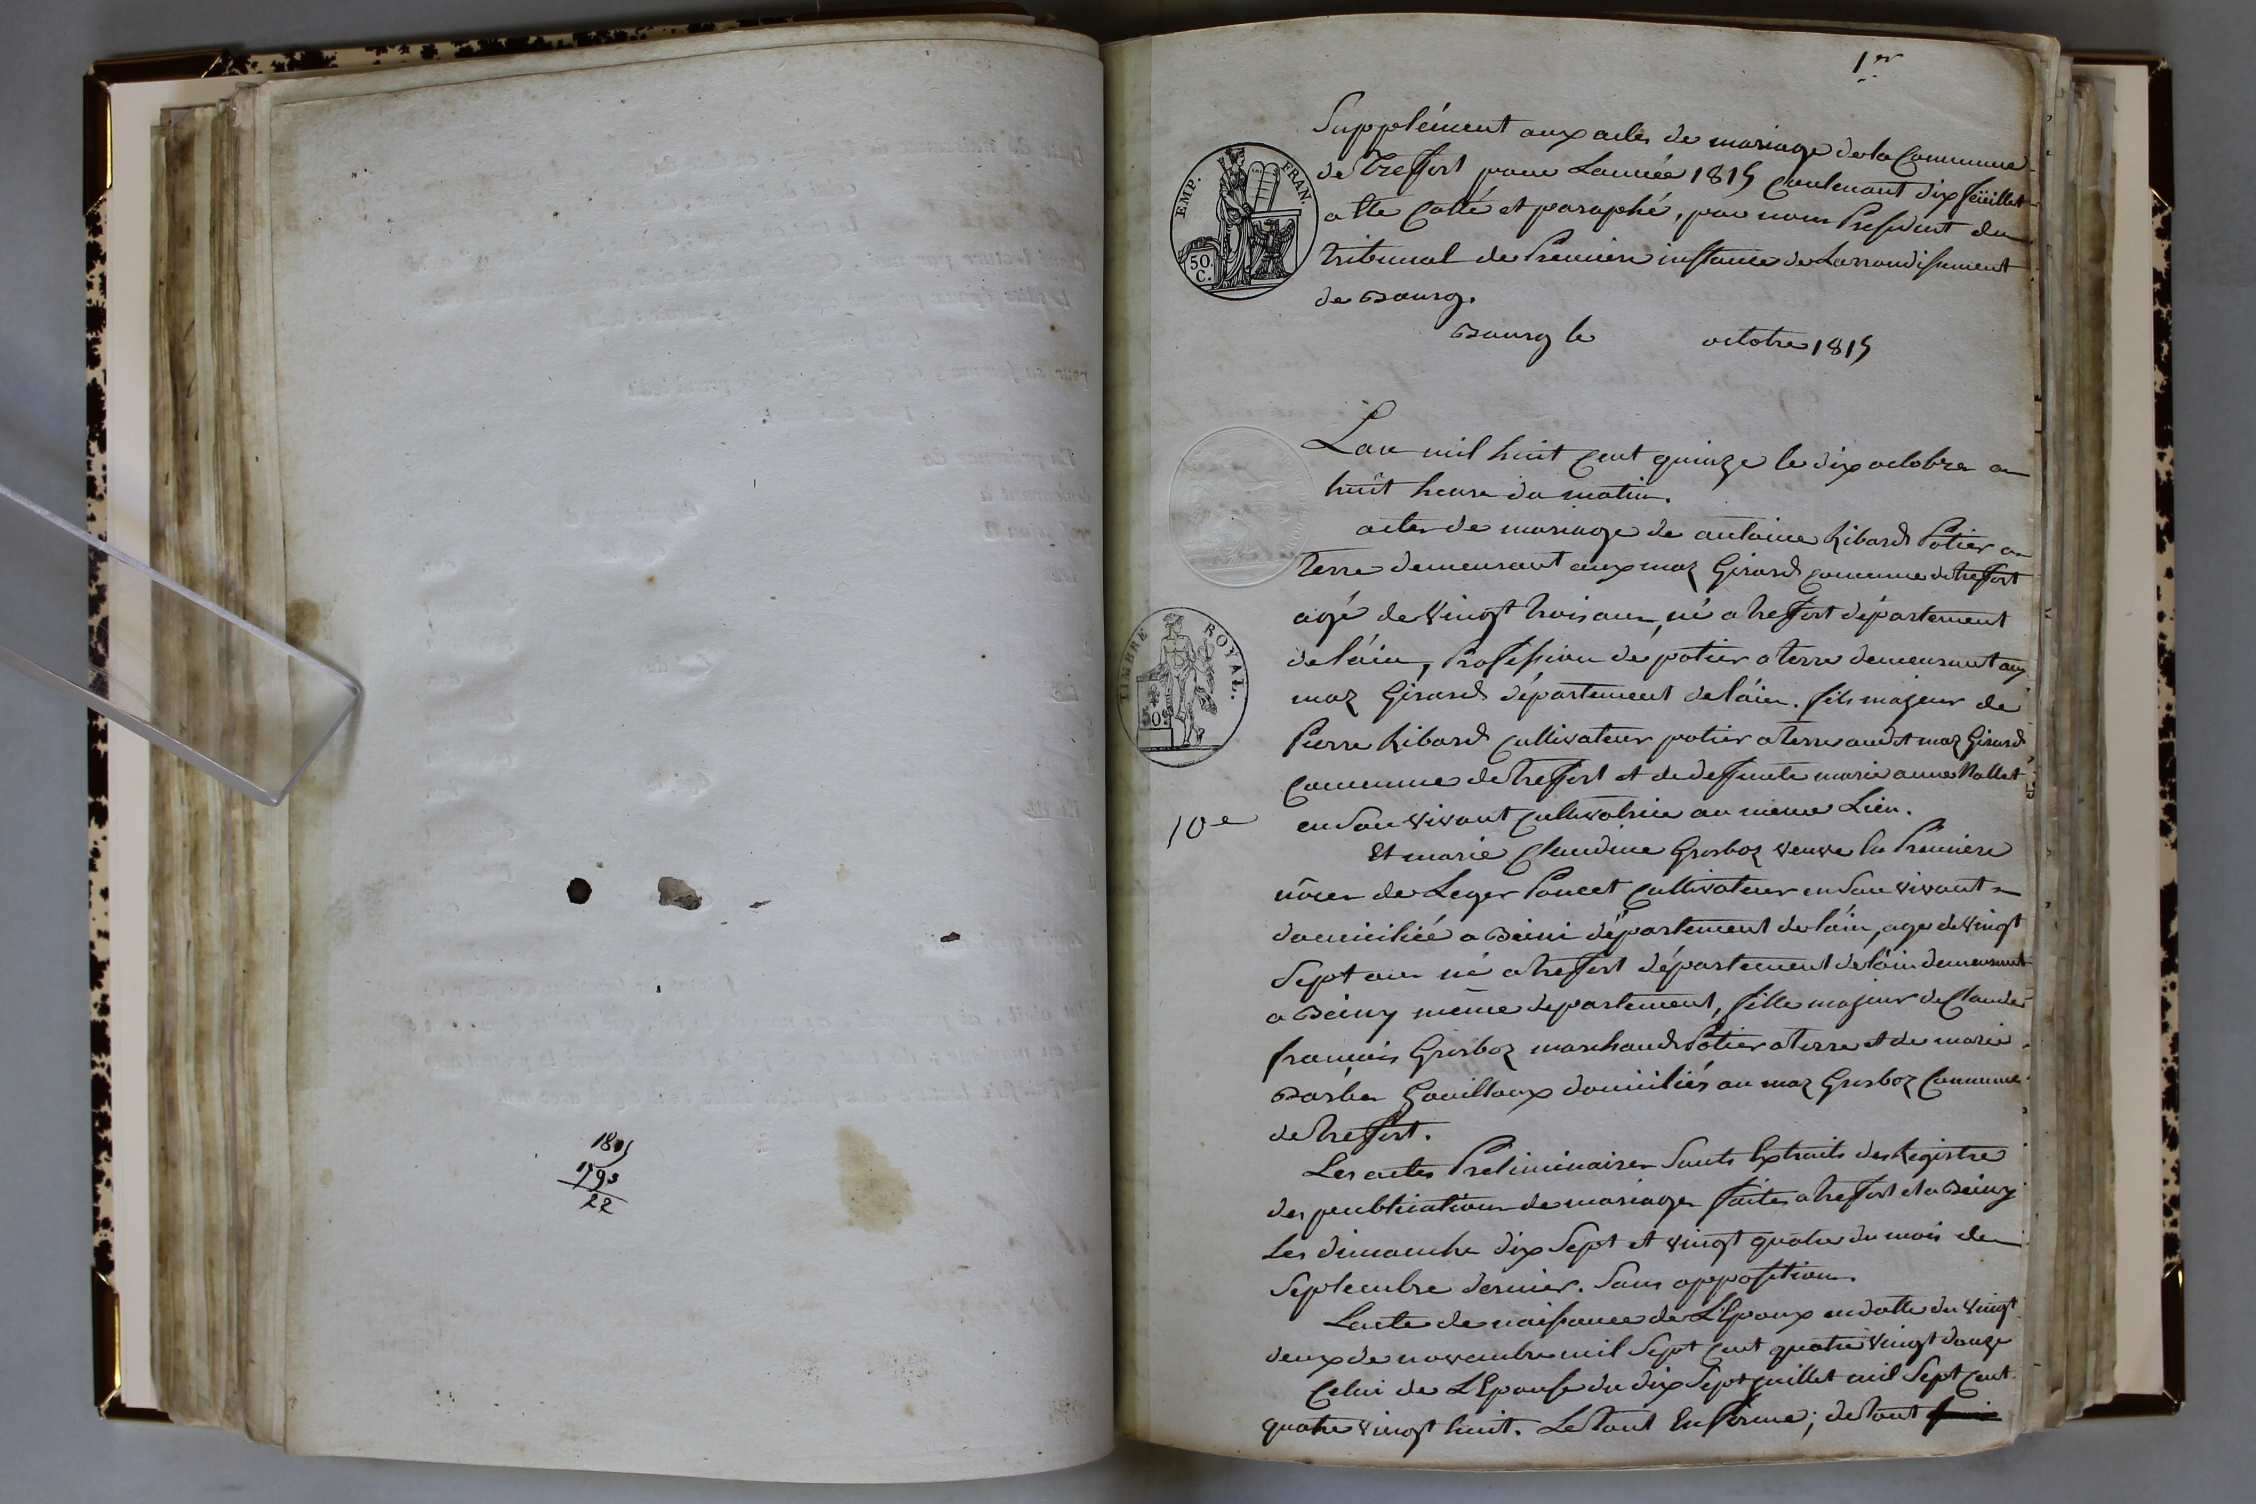 1815
1793
22
1er
Supplément aux actes de mariage de la Commune
de Treffort pour Lannée 1815 Contenant dix feüillet
a tte Cotté et paraphé, par nous President du
tribunal de Premiere instance de Larrondissement
de Bourg.
Bourg le octobre 1815
EMP. FRAN.
50.
C.
Lan mil huit Cent quinze le dix octobre a
huit heure du matin.
acte de mariage de antoine Ribard Potier a
terre demeurant aux maz Girard commune de treffort
agé de vingt trois ans, né a treffort département
de láin, Profession de potier a terre demeurant aux
maz Girard département de láin. fils majeur de
Pierre Ribard Cultivateur potier a terre audit maz Girard
Commune de treffort et de deffunte marie anne Nallet
en Son vivant Cultivatrice au même Lieu.
TIMBRE ROYAL.
50c
10e
Et marie Claudine Grosboz veuve en Premiere
nôces de Leger Poncet Cultivateur en Son vivant
domiciliée a Beini département de láin, age de vingt
Sept ans né a treffort département de láin demeurant
a Beiny même departement, fille majeur de Claude
francois Grosboz marchand Potier a terre et de marie
Barbe Gouilloux domiciliés au maz Grosboz Commune
de treffort.
Les actes Preliminaires Sonts Extraits des Registre
des peublications de mariage faites a treffort et a Beiny
Les dimanche dix Sept et vingt quatre du mois de
Septembre dernier. Sans opposition.
Lacte de naissance de L'Epoux en datte du vingt
deux de novembre mil Sept Cent quatre vingt douze
Celui de L'Epouse du dix Sept juillet mil Sept Cent
quatre vingt huit. Le tout En forme; de tout